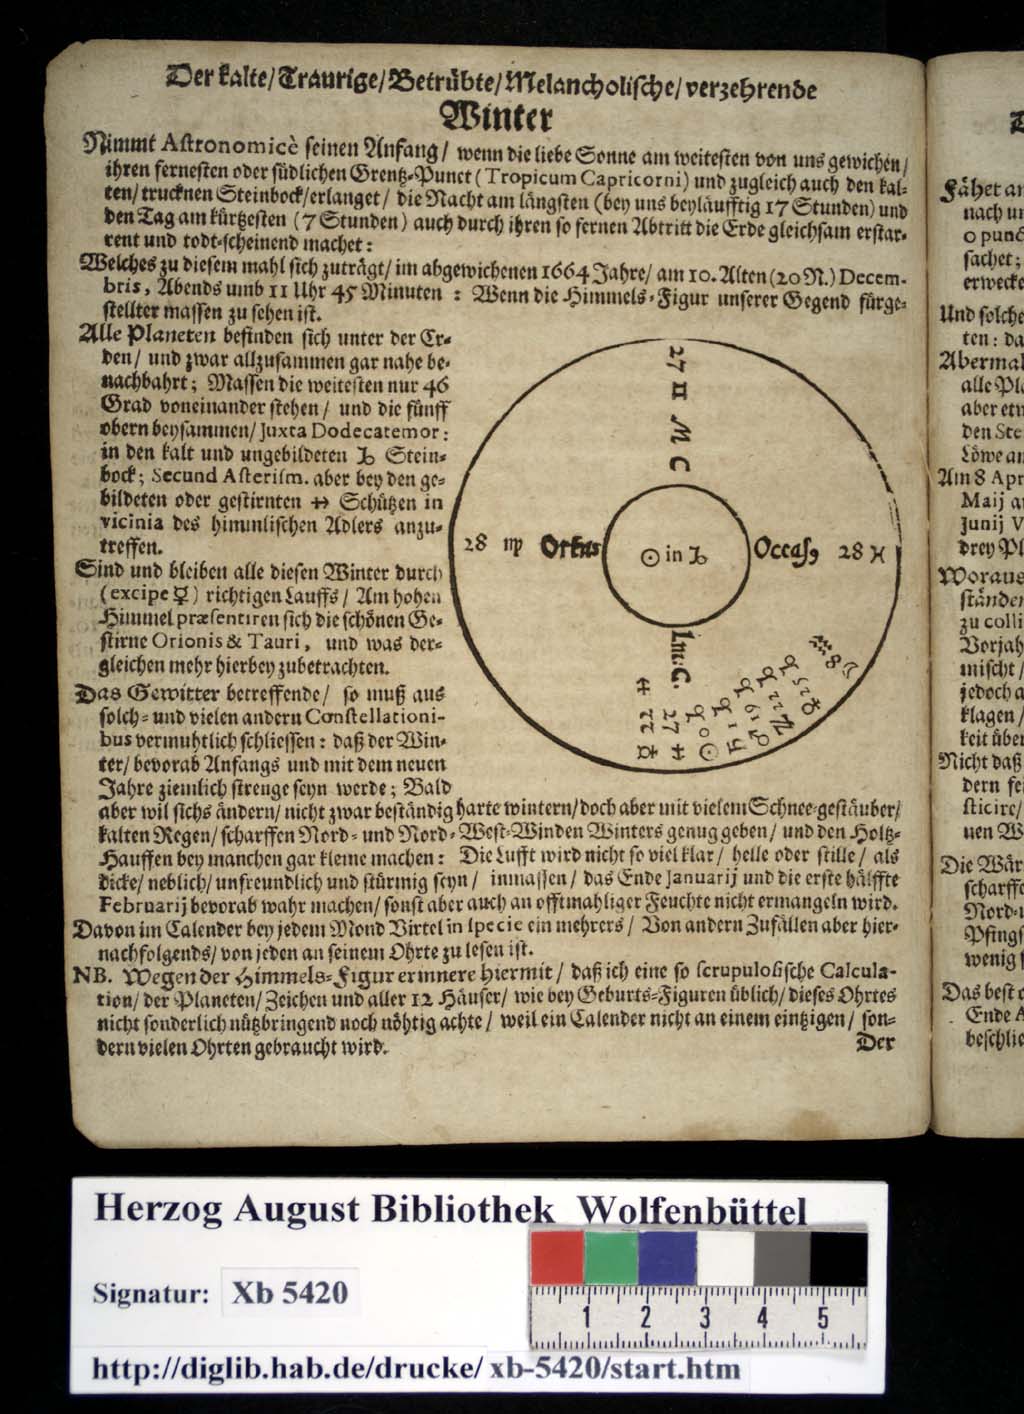 Der kalte/ Traurige/ Betrübte/ Melancholische/ verzehrende
Winter
Nimmt Astronomicè seinen Anfang/ wenn die liebe Sonne am weitesten von uns gewichen/
ihren fernesten oder südlichen Grentz-Punct (Tropicum Capricorni) und zugleich auch den kal-
ten/ trucknen Steinbock/ erlanget/ die Nacht am längsten (bey uns beyläufftig 17 Stunden) und
den Tag am kürtzesten (7 Stunden) auch durch ihren so fernen Abtritt die Erde gleichsam erstar-
rent und todt-scheinend machet:
Welches zu diesem mahl sich zuträgt/ im abgewichenen 1664 Jahre/ am 10. Alten (20 N.) Decem-
bris, Abends umb 11 Uhr 45 Minuten : Wenn die Himmels-Figur unserer Gegend fürge-
stellter massen zu sehen ist.
Alle Planeten befinden sich unter der Er-
den/ und zwar allzusammen gar nahe be-
nachbahrt; Massen die weitesten nur 46
Grad voneinander stehen/ und die fünff
obern beysammen/ Juxta Dodecatemor:
in den kalt und ungebildeten ♑ Stein-
bock; Secund Asterism. aber bey den ge-
bildeten oder gestirnten ♐ Schützen in
vicinia des himmlischen Adlers anzu-
treffen.
Sind und bleiben alle diesen Winter durch
(excipe ☿) richtigen Lauffs/ Am hohen
Himmel præsentiren sich die schönen Ge-
stirne Orionis & Tauri, und was der-
gleichen mehr hierbey zubetrachten.
Das Gewitter betreffende/ so muß aus
solch- und vielen andern Constellationi-
bus vermuhtlich schliessen: daß der Win-
ter/ bevorab Anfangs und mit dem neuen
Jahre ziemlich strenge seyn werde; Bald
aber wil sichs ändern/ nicht zwar beständig harte wintern/ doch aber mit vielem Schnee-gestäuber/
kalten Regen/ scharffen Nord- und Nord-West-Winden Winters genug geben/ und den Holtz-
Hauffen bey manchen gar kleine machen: Die Lufft wird nicht so viel klar/ helle oder stille/ als
dicke/ neblich/ unfreundlich und stürmig seyn/ inmassen/ das Ende Januarij und die erste hälffte
Februarij bevorab wahr machen/ sonst aber auch an offtmahliger Feuchte nicht ermangeln wird.
Davon im Calender bey jedem Mond Virtel in specie ein mehrers/ Von andern Zufällen aber hier-
nachfolgends/ von jeden an seinem Ohrte zu lesen ist.
NB. Wegen der Himmels-Figur erinnere hiermit/ daß ich eine so scrupulosische Calcula-
tion/ der Planeten/ Zeichen und aller 12 Häuser/ wie bey Geburts-Figuren üblich/ dieses Ohrtes
nicht sonderlich nützbringend noch nöhtig achte/ weil ein Calender nicht an einem eintzigen/ son-
dern vielen Ohrten gebraucht wird.
Der
27 ♊ M C
28 ♍ Ortus
☉ in ♑
Occas9 28 ♓
Im: C.
27 ♐
☿ 22 ♐
☉ 0 ♑
Fähet an
nach un
0 punc
sachet;
erwecke
Und solche
ten: da
Abermal
alle Pla
aber etn
den Ste
Löwe an
Am 8 Apr
Maij a
Junij V
drey Pl
Woraus
ständen
zu colli
Vorjah
mischt/
jedoch a
klagen/
keit übe
Nicht daß
dern fe
sticire/
nen W
Die Wär
scharffe
Nord-u
Pfings
wenig
Das best
Ende A
beschlie
Herzog August Bibliothek Wolfenbüttel
Signatur: Xb 5420
1 2 3 4 5
http://diglib.hab.de/drucke/ xb-5420/start.htm